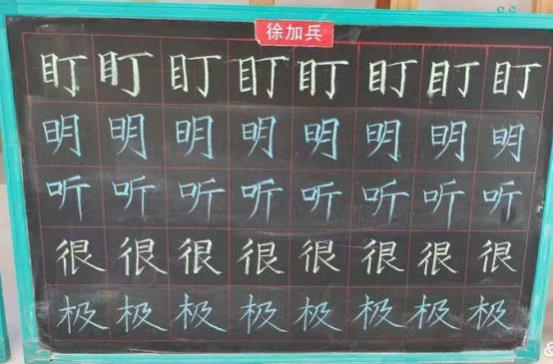 徐加兵
盯 盯 盯 盯 盯 盯 盯 盯
明 明 明 明 明 明 明 明
听 听 听 听 听 听 听 听
很 很 很 很 很 很 很 很
极 极 极 极 极 极 极 极